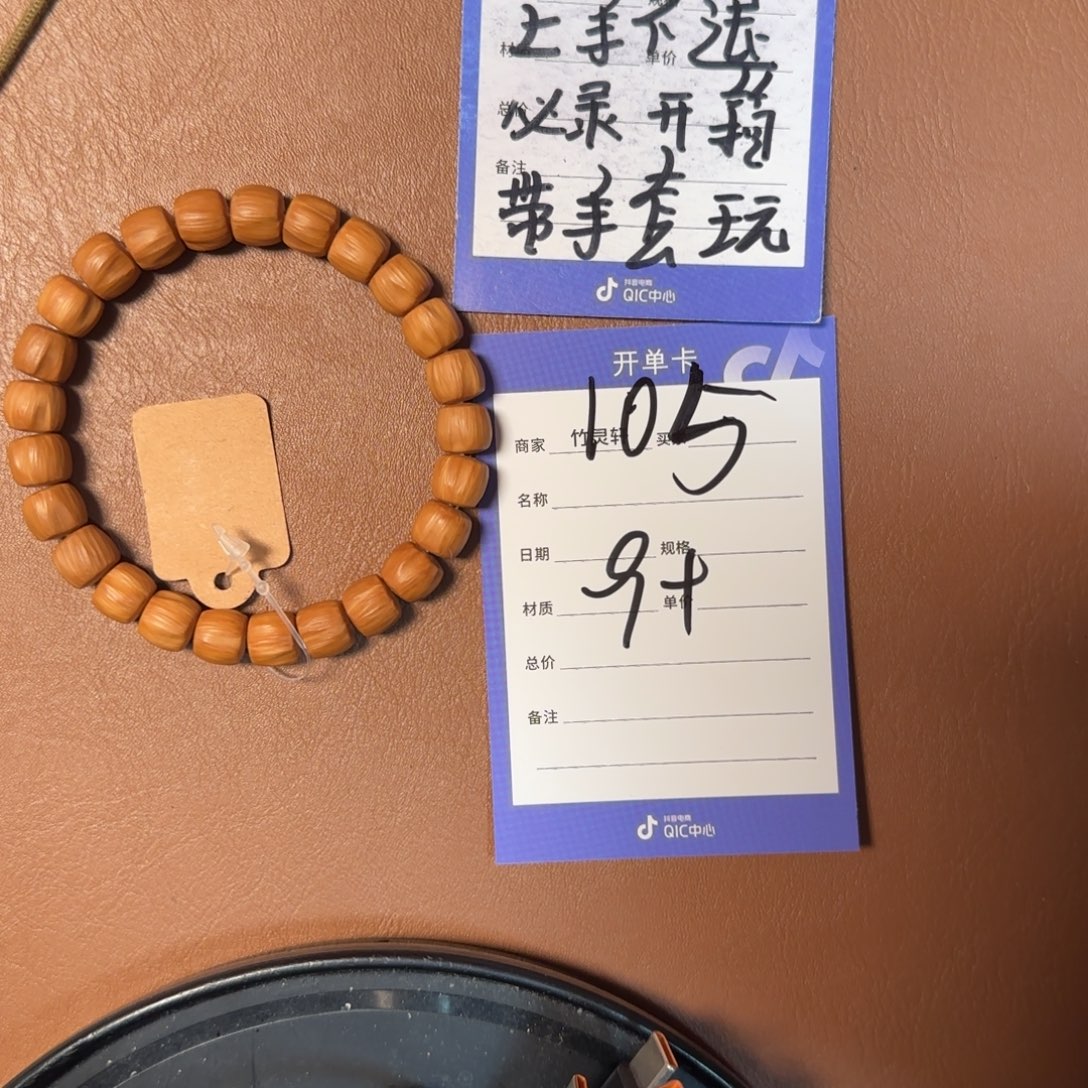 规格
上手不退
材质 单价
必录开箱
总价
备注
带手套玩
抖音电商
QIC中心
开单卡
105
商家 竹灵轩 买家
名称
9+
日期 规格
材质 单价
总价
备注
抖音电商
QIC中心